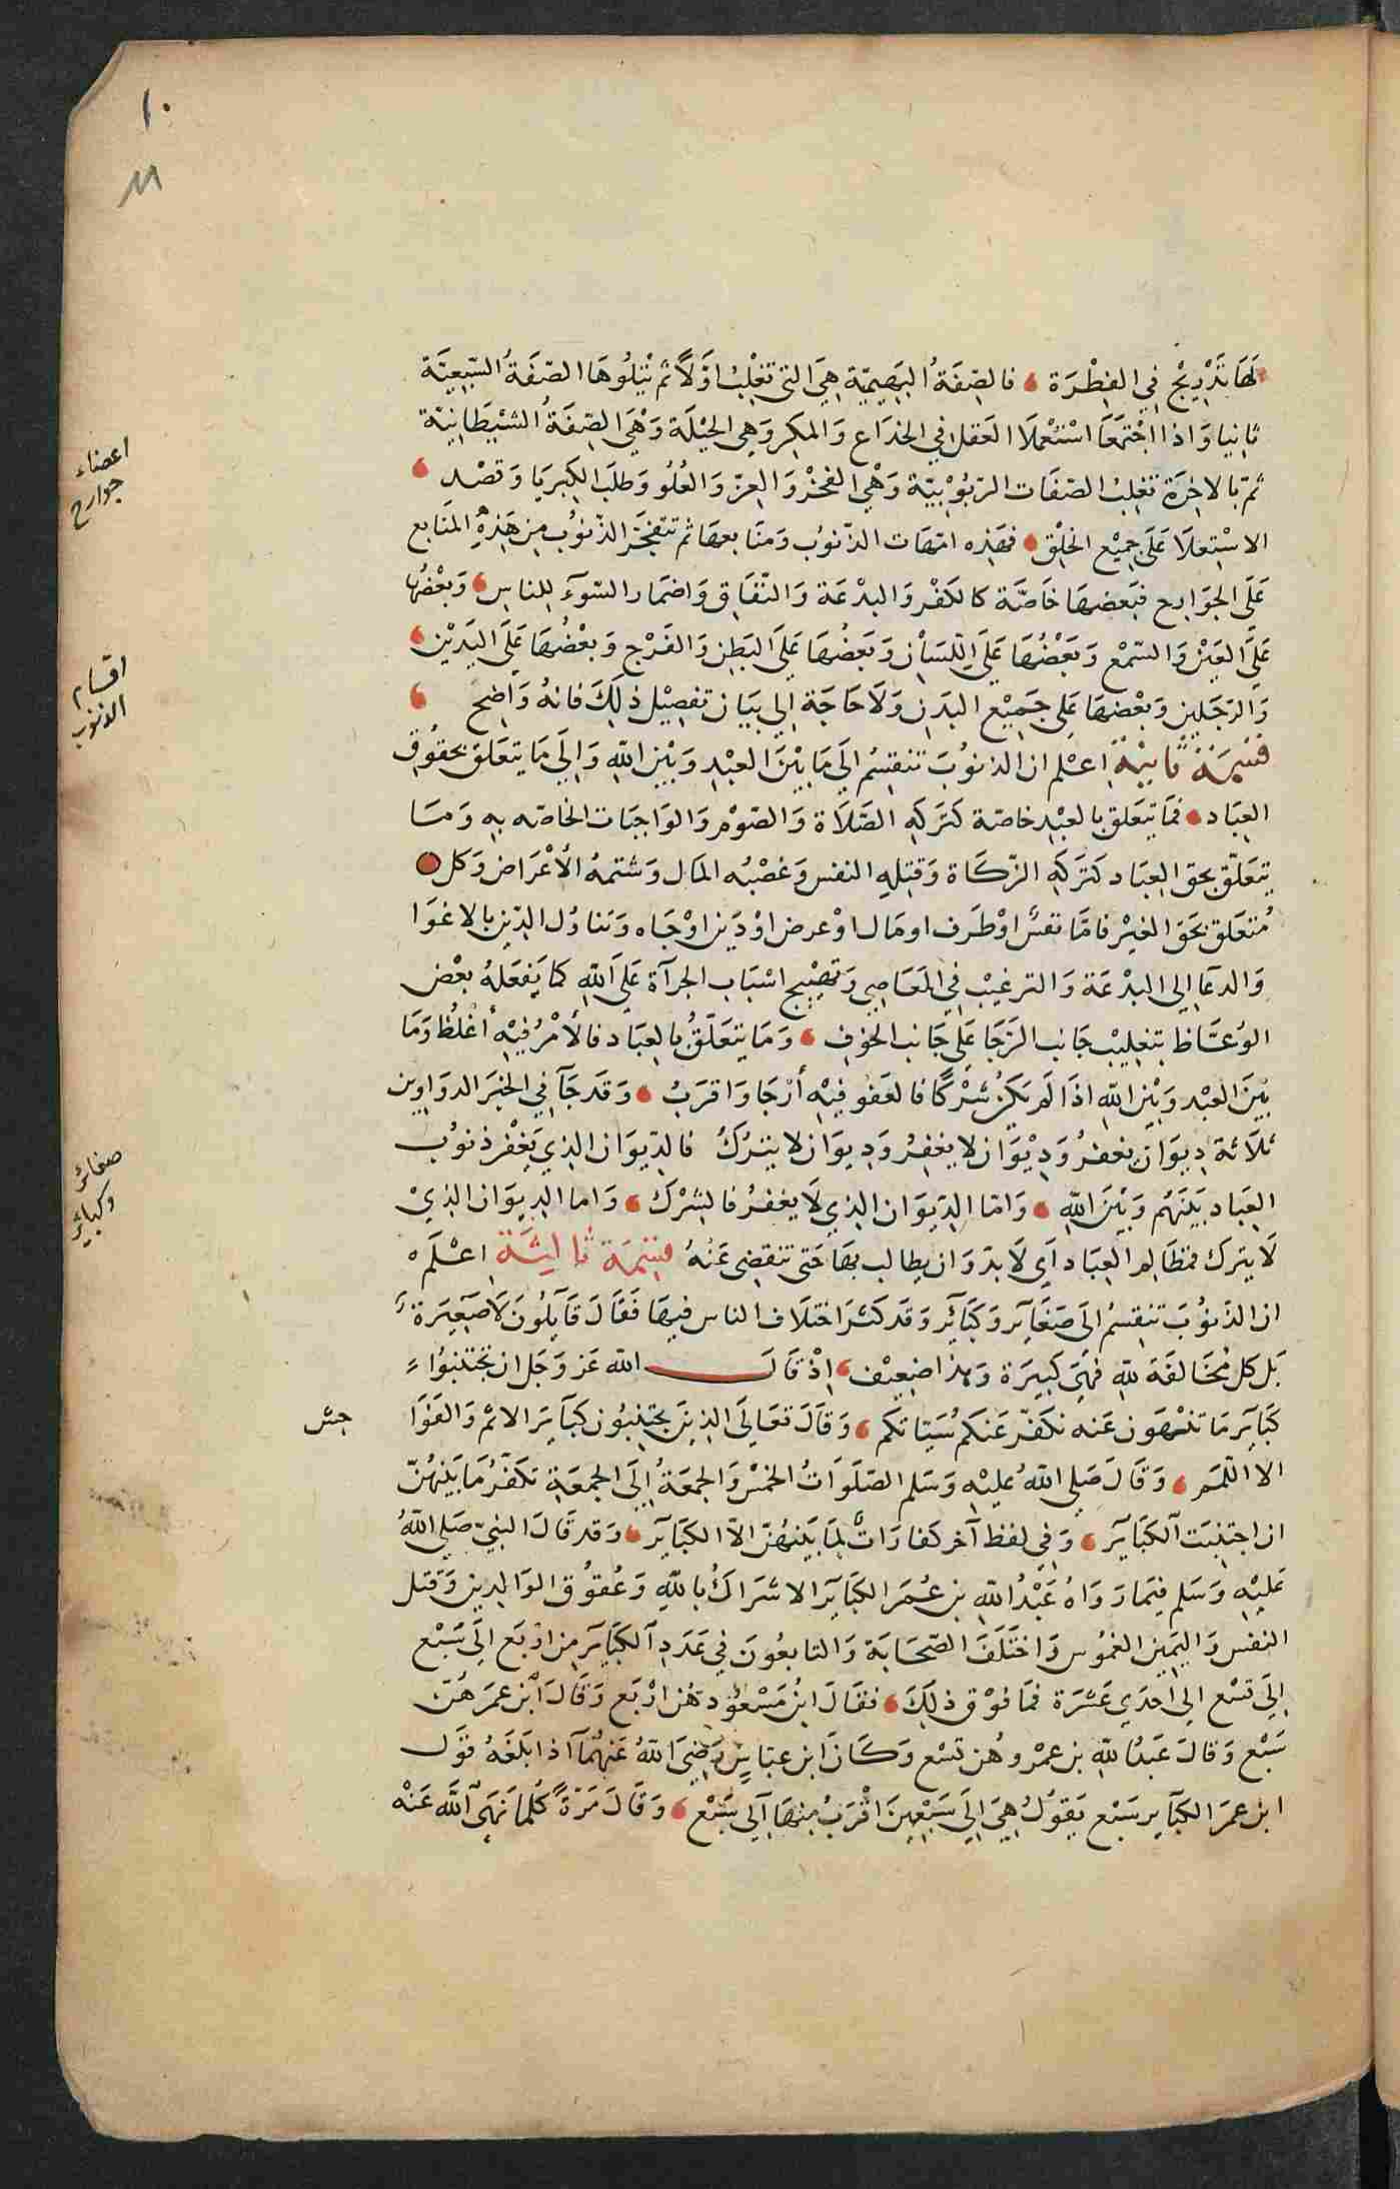 ١٠
١١
لها تدريج في الفطرة فالصّفةُ البهيميّة هي التي تغلبُ اوّلاً ثم يتلوها الصّفةُ السّبعيّة
ثانيا واذا اجتمعا استعملا العقل في الخداع والمكر وهي الحيلة وهي الصّفةُ الشيطانيّة
ثمّ بالاخرة تغلبُ الصّفات الرّبوبيّة وهي الفخر والعزّ والعُلُو وطلب الكبريا وقصد
الاستعلا على جميع الخلق فهذه امّهات الذّنوب ومنابعها ثم تتفجّر الذّنوُب من هذهِ المنابع
على الجوارح فبعضها خاصّة كالكفر والبدعة والنّفاق واضمار السّوء للناس وبعضُها
على العين والسّمع وبعضُها على اللّسان وبعضُها على البطن والفرج وبعضُها على اليدين
والرّجلين وبعضها على جميع البدن ولا حاجة الي بيان تفصيل ذلك فانهُ واضح
قسمة ثانية اعلم ان الذنوُبَ تنقسمُ الى ما بينَ العبد وبين الله والى ما يتعلق بحقوُق
العباد فما يتعلق بالعبد خاصّة كتركه الصّلاة والصّوم والواجبات الخاصّه به وما
يتعلّق بحق العباد كتركه الزّكاة وقتله النفس وغصبُه المال وشتمهُ الأعراض وكل
مُتعلق بحق الغير فامّا نفسٌ او طرف او مال او عرض او دين او جاه وتناوُل الدّين بالاغوا
والدعا الى البدعة والترغيب في المعاصي وتهييج اسباب الجرآة على الله كما يفعلهُ بعض
الوُعّاظ بتغليب جانب الرّجا على جانب الخوف وما يتعلّقُ بالعباد فالأمرُ فيه أغلظُ وما
بينَ العبد وبين الله اذا لم يكن شركًا فالعفو فيه أرجا واقربُ وقد جآ في الخبر الدواوين
ثلاثة ديوان يغفرُ وديوان لا يغفرُ وديوان لا يتركُ فالدّيوان الذي يغفر ذنوُب
العباد بينهُم وبين الله وامّا الدّيوان الذي لا يغفرُ فالشرك واما الديوان الذي
لا يترك فمظالم العباد اي لا بدّ وان يطالب بها حتى تنقضى عنهُ قسمة ثالثة اعلم
ان الذّنوُبَ تنقسمُ الى صغآير وكبآئر وقد كثر اختلاف الناس فيها فقال قآيلُون لا صغيرة
بل كل مُخالفة لله فهي كبيرة وهذا ضعيف إذ قال الله عز وجل ان تجتنبوُا
كبآير ما تنهون عنه نكفّر عنكم سيّاتكم وقال تعالى الذين يجتنبُون كبآير الاثم والفوا
حش
الا اللّمم وقال صلى اللهُ عليه وسلم الصّلواتُ الخمسُ والجمعةُ إلى الجمعة تكفّرُ ما بينهُنّ
ان اجتنبت الكبآير وفي لفظ آخر كفاراتٌ لما بينهُنّ الّا الكبآير وقد قال النبيّ صلى اللهُ
عليه وسلم فيما رواهُ عبدُ الله بن عُمر الكبآير الاشراكُ بالله وعُقوُق الوالدين وقتل
النفس واليمين الغموُس واختلفَ الصّحابة والتابعُون في عدد الكبآير من اربع إلى سبع
إلى تسع الى احدي عشرة فما فوق ذلك فقال ابنُ مسعوُد هُن اربع وقال ابن عمر هُن
سبع وقال عبدُ الله بن عمرو هُن تسع وكان ابن عبّاس رضي اللهُ عنهُما اذا بلغهُ قوَل
ابن عمر الكبآير سبع يقوُلُ هي إلى سبعين اقربُ منها إلى سبع وقال مرّةً كُلما نهى الله عنه
اعضاء
جوارح
اقسام
الذنوب
صغائر
وكبائر